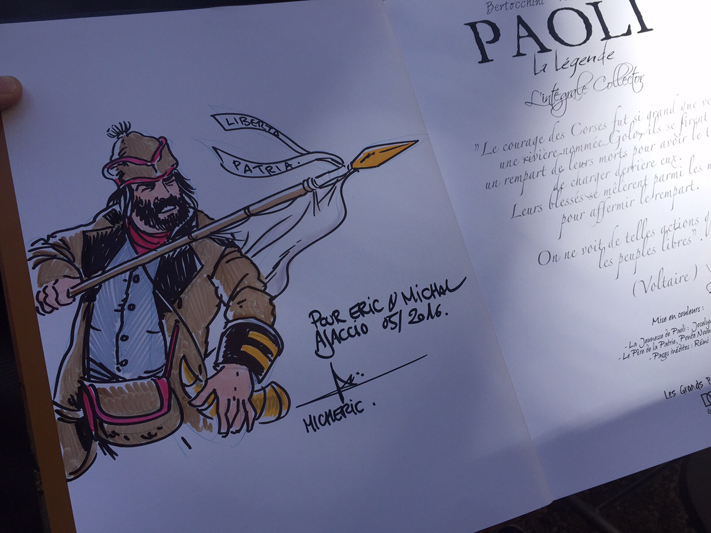 LIBERTA
PATRIA.
POUR ERIC & MICHAL
AJACCIO 05/2016.
MICHERIC.
Bertocchini
PAOLI
La Légende
L'intégrale Collector
"Le courage des Corses fut si grand que
une rivière nommée Golo, ils se firent
un rempart de leurs morts pour avoir le
de charger derrière eux.
Leurs blessés se mêlèrent parmi les
pour affermir le rempart.
On ne voit de telles actions
les peuples libres".
(Voltaire)
Mise en couleurs :
- La Jeunesse de Paoli :
- Le Père de la Patrie,
- Pages inédites : Rémi
Les Grands